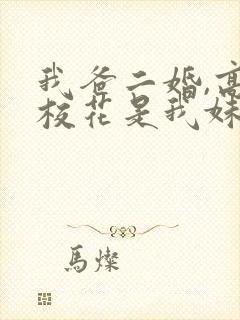 我爸二婚,高
校花是我妹
馬燦